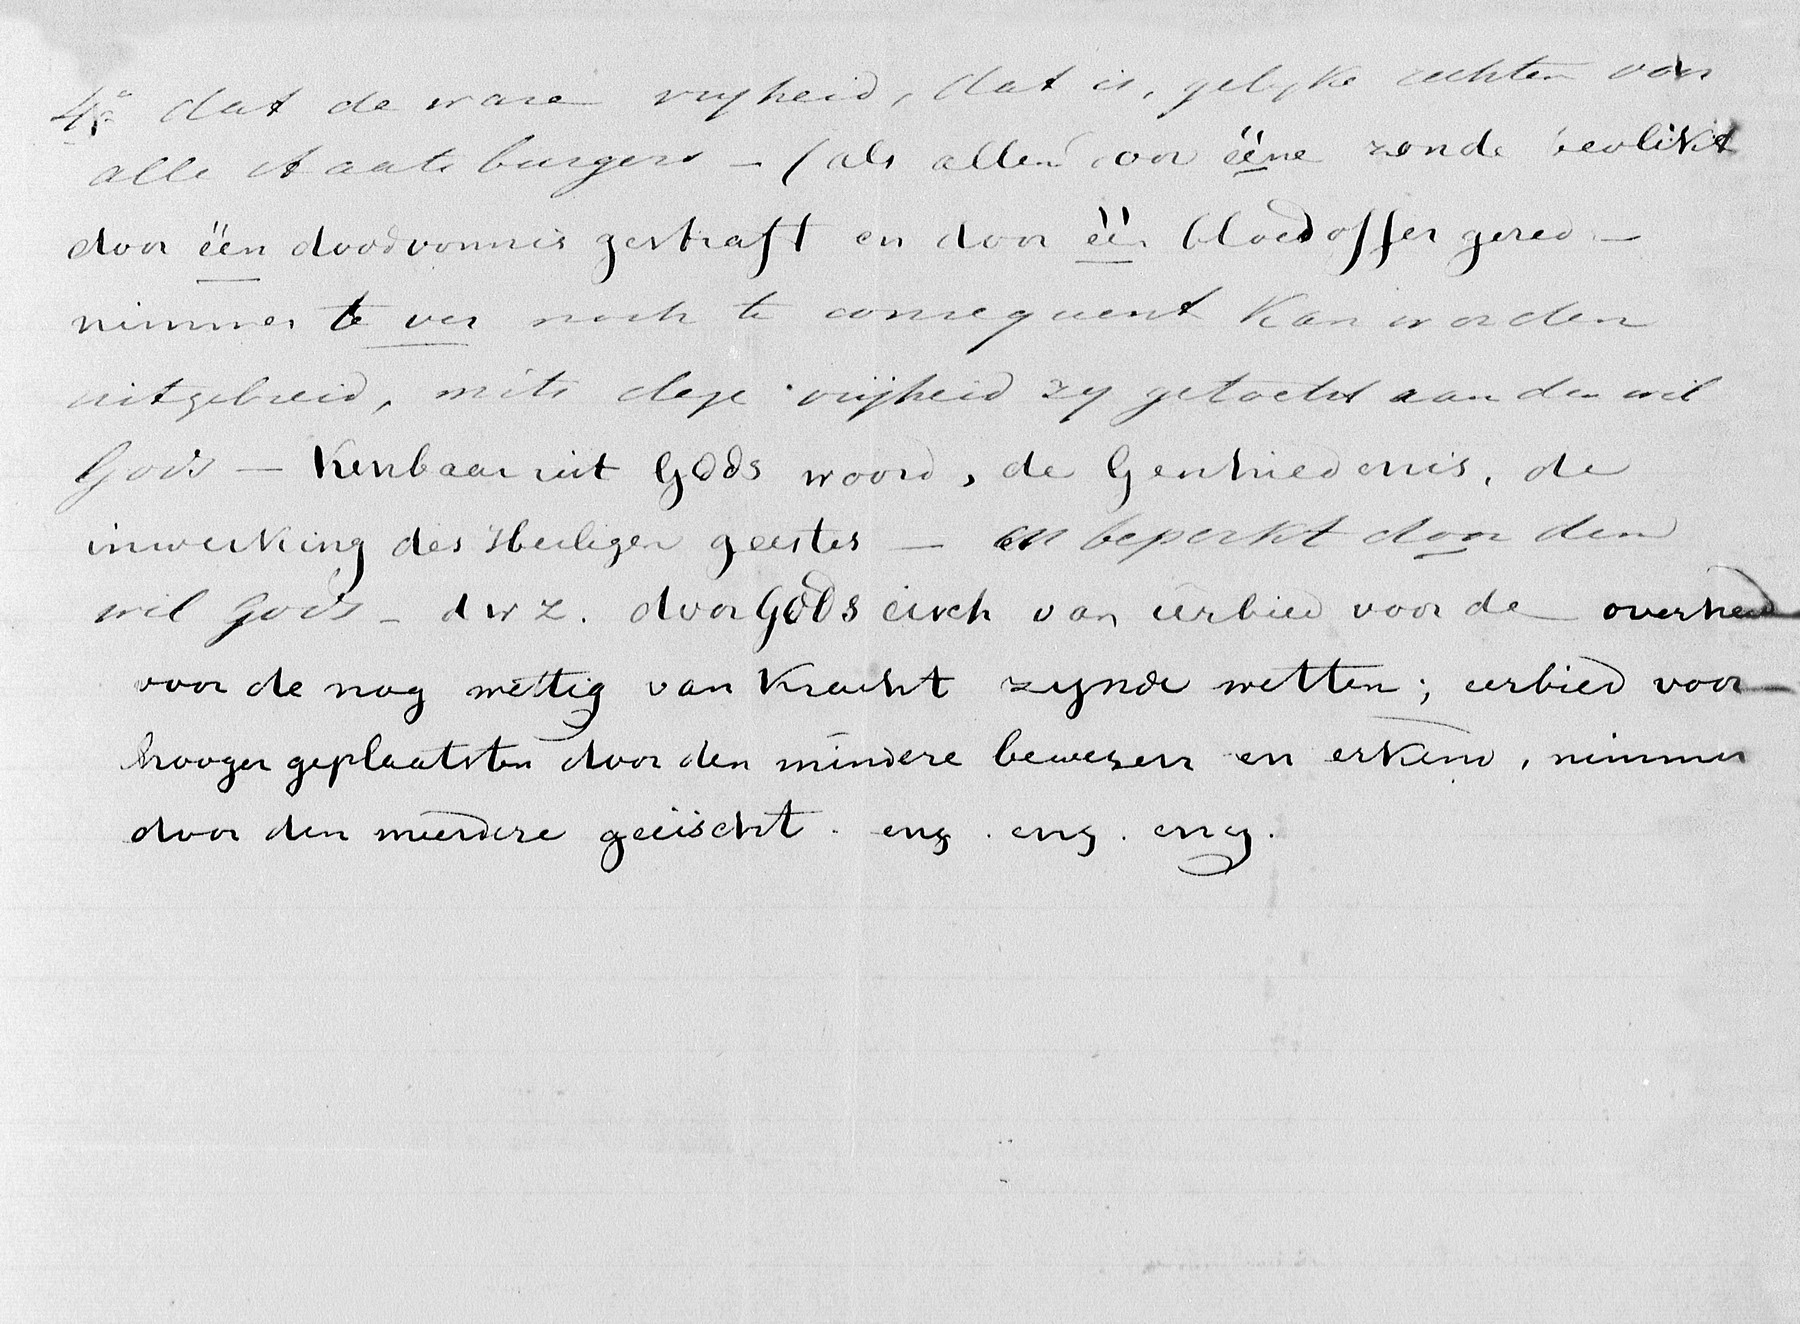 4° dat de ware vryheid, dat is, gelyke rechten van
alle staatsburgers – (als allen door ééne zonde bevlekt
door één doodvonnis gestraft en door één bloedoffer gered –
nimmer te ver noch te consequent kan worden
uitgebreid, mits deze vrijheid zy getoetst aan den wil
Gods – kenbaar uit Gods woord, de Geschiedenis, de
inwerking des Heiligen geestes – en beperkt door den
wil Gods – dwz. door Gods eisch van eerbied voor de overheid
voor de nog wettig van kracht zynde wetten; eerbied voor
hooger geplaatsten door den mindere bewezen en erkend, nimmer
door den meerdere geëischt. enz. enz. enz.